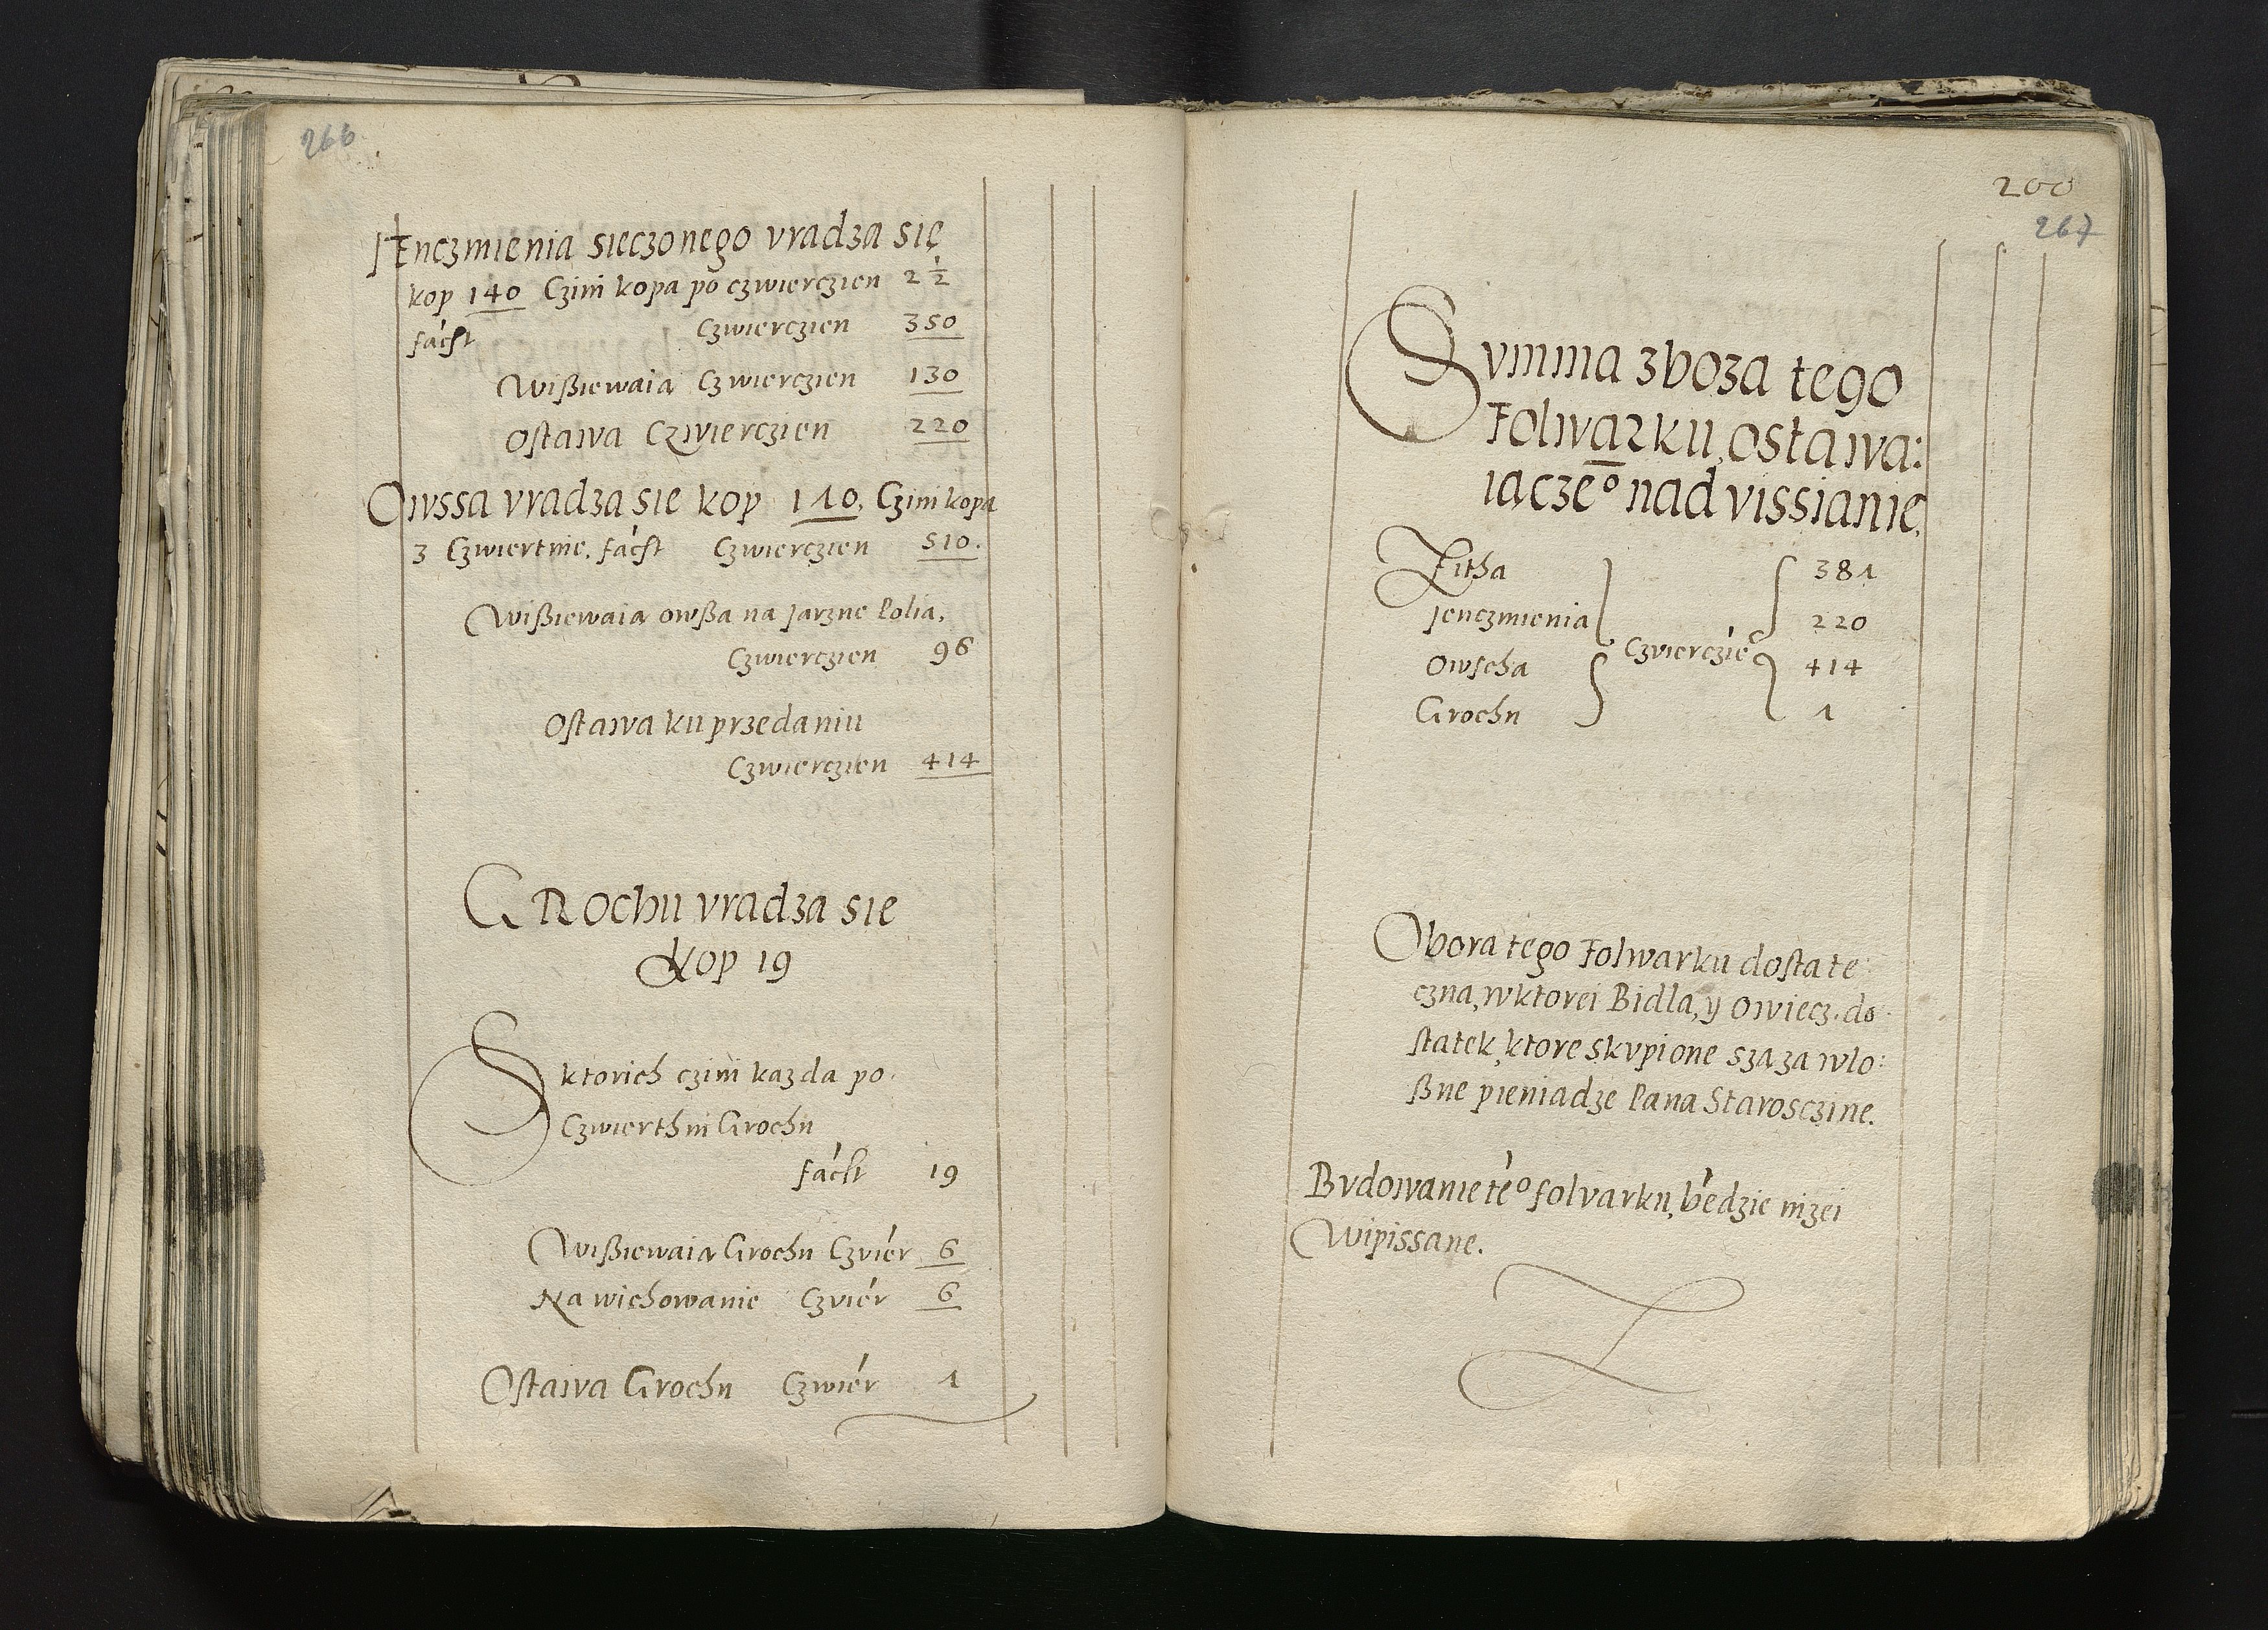 266
Jenczmienia sieczonego vradza się
kop 140 Czini kopa po czwierczien 2 1/2
fácſt Czwierczien 350
Wißiewaia Czwierczien 130
Oſtawa Czwierczien 220
Owssa vradza sie kop 110. Czini kopa
3 Czwiertnie. fácſt Czwierczien 510.
Wißiewaia owßa na Jarzne Polia.
Czwierczien 96
Oſtawa ku przedaniu
Czwierczien 414
GRochu vradza sie
Kop 19
S ktorich czini kazda po
Czwierthni Grochu
fácſt 19
Wißiewaia Grochu Czviér 6
Na wichowanie Czviér 6
Oſtawa Grochu Czwiér 1
200
267
Svmma zboza tego
Folwarku, ostawa:
iącze͞º nad vissianie.
Zitha 381
Jenczmienia 220
Czvierczié
Owscha 414
Grochu 1
Obora tego Folwarku doſtate
czna, w ktorei Bidla, y owiecz. do
ſtatek, ktore skvpione sza za wlo:
ßne pieniadze Pana Starosczine.
Bvdowanie téº folvarku, bédzie nizei
Wipissane.